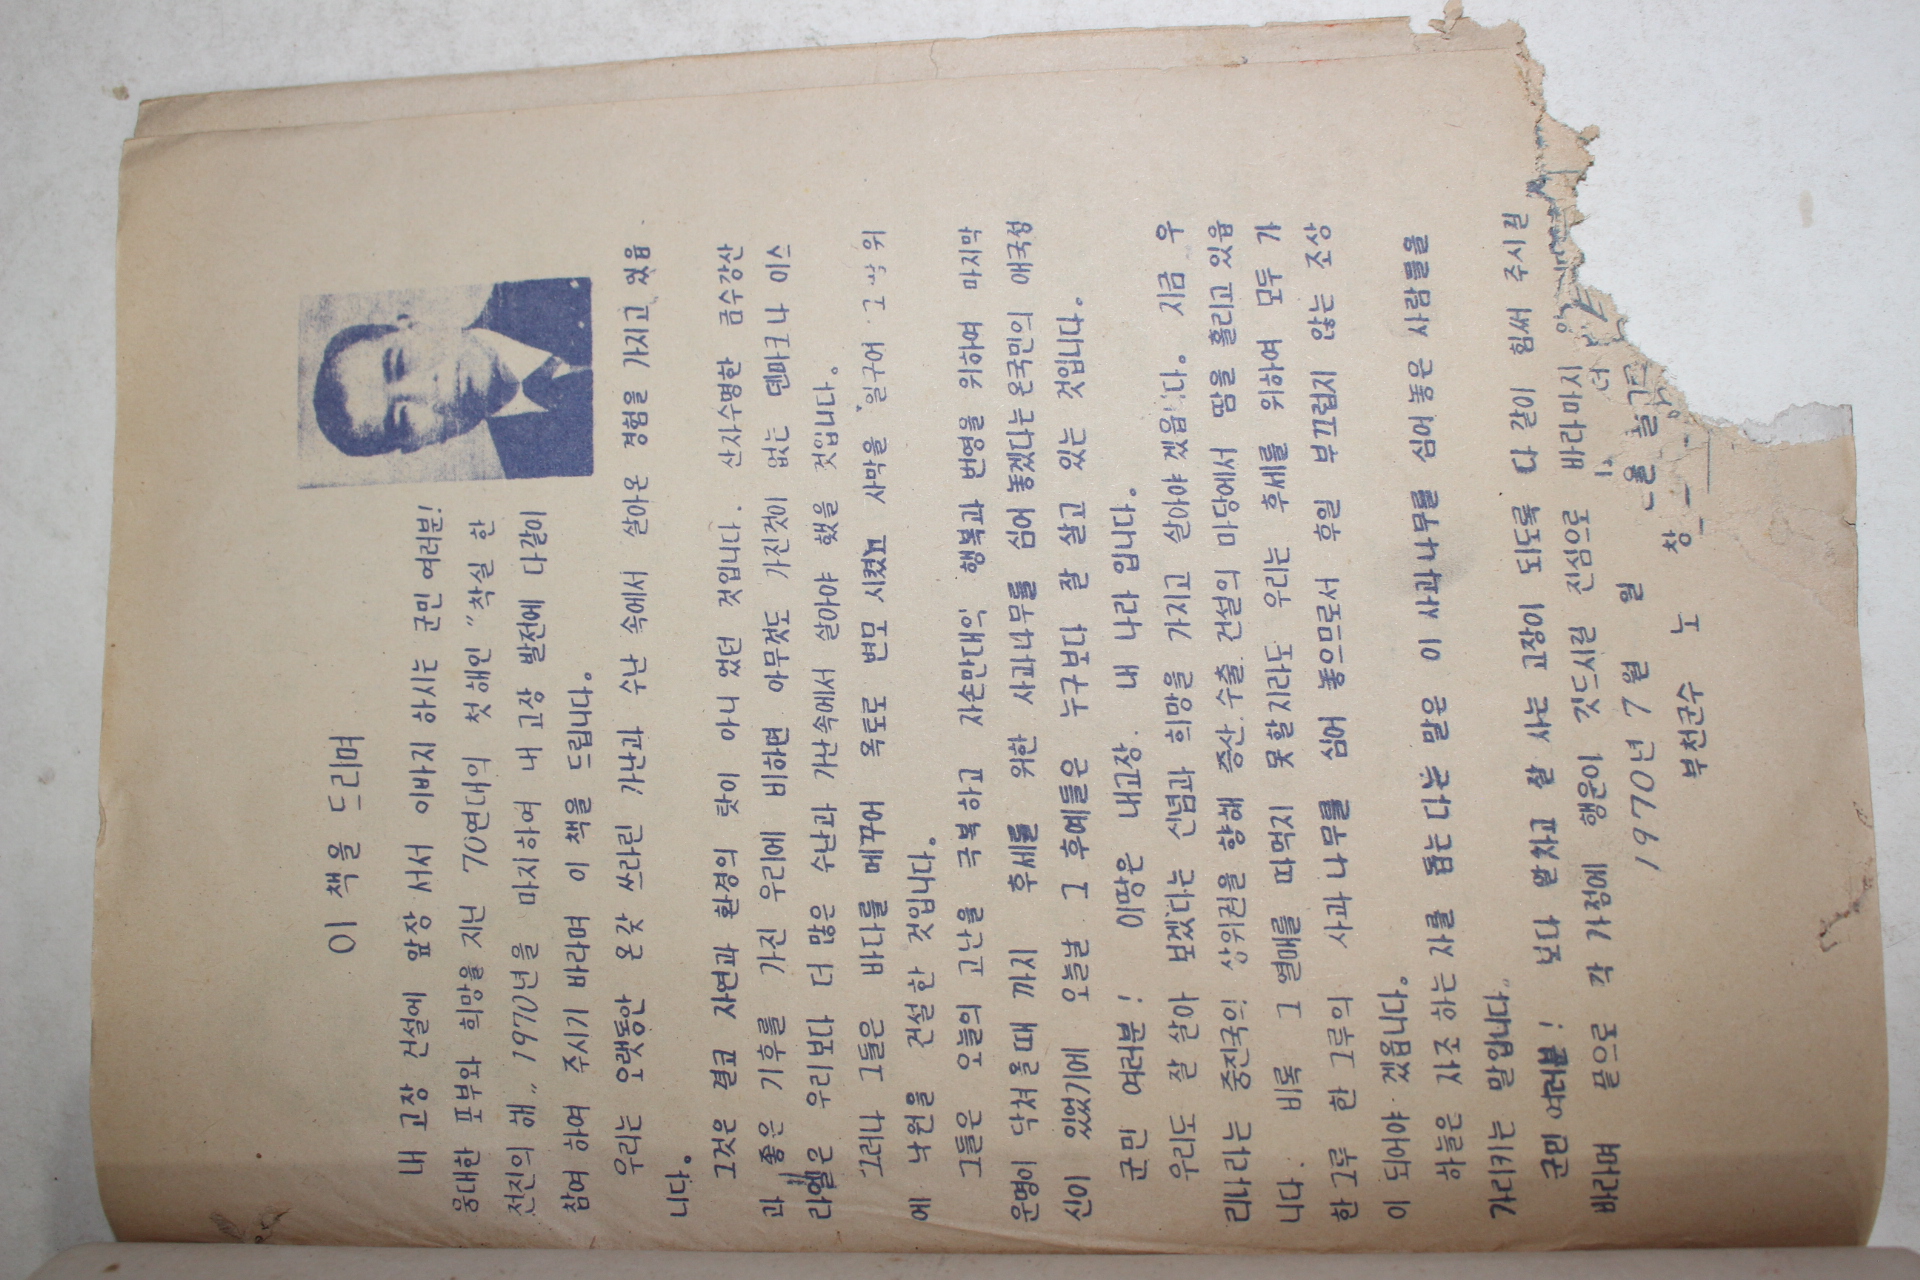 이 책을 드리며
내 고장 건설에 앞장 서서 이바지 하시는 군민 여러분!
웅대한 포부와 희망을 지닌 70연대의 첫 해인 "착실 한
전진의 해" 1970년을 마지하여 내 고장 발전에 다같이
참여 하여 주시기 바라며 이 책을 드립니다.
우리는 오랫동안 온갖 쓰라린 가난과 수난 속에서 살아온 경험을 가지고 있읍
니다.
그것은 결코 자연과 환경의 탓이 아니 었던 것입니다. 산자수명한 금수강산
과 좋은 기후를 가진 우리에 비하면 아무것도 가진것이 없는 덴마크나 이스
라엘은 우리보다 더 많은 수난과 가난속에서 살아야 했을 것입니다.
그러나 그들은 바다를 메꾸어 옥토로 변모 시켰고 사막을 일구어 그 위
에 낙원을 건설한 것입니다.
그들은 오늘의 고난을 극복하고 자손만대의 행복과 번영을 위하여 마지막
운명이 닥쳐올때 까지 후세를 위한 사과나무를 심어 놓겠다는 온국민의 애국성
신이 있었기에 오늘날 그 후예들은 누구보다 잘 살고 있는 것입니다.
군민 여러분! 이땅은 내고장. 내 나라 입니다.
우리도 잘 살아 보겠다는 신념과 희망을 가지고 살아야 겠읍니다. 지금 우
리나라는 중진국의 상위권을 향해 증산.수출.건설의 마당에서 땀을 흘리고 있읍
니다. 비록 그 열매를 따먹지 못할지라도 우리는 후세를 위하여 모두 가
한그루 한 그루의 사과나무를 심어 놓으므로서 후일 부끄럽지 않는 조상
이 되어야 겠읍니다.
하늘은 자조 하는 자를 돕는다는 말은 이 사과나무를 심어놓은 사람들을
가리키는 말입니다"
군민 여러분! 보다 알차고 잘 사는 고장이 되도록 다 같이 힘써 주시길
바라며 끝으로 각 가정에 행운이 깃드시길 진심으로 바라마지
1970년 7월 월
부천군수 노 창